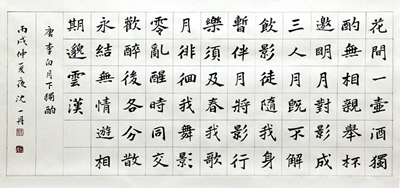 花間一壺酒獨
酌無相親舉杯
邀明月對影成
三人月既不解
飲影徒隨我身
暫伴月將影行
樂須及春我歌
月徘徊我舞影
零亂醒時同交
歡醉後各分散
永結無情遊相
期邈雲漢
唐李白月下獨酌
丙戌仲夏夜沈一丹